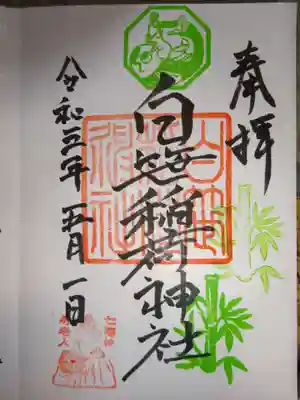 奉拝
白笹稲荷神社
令和五年五月一日